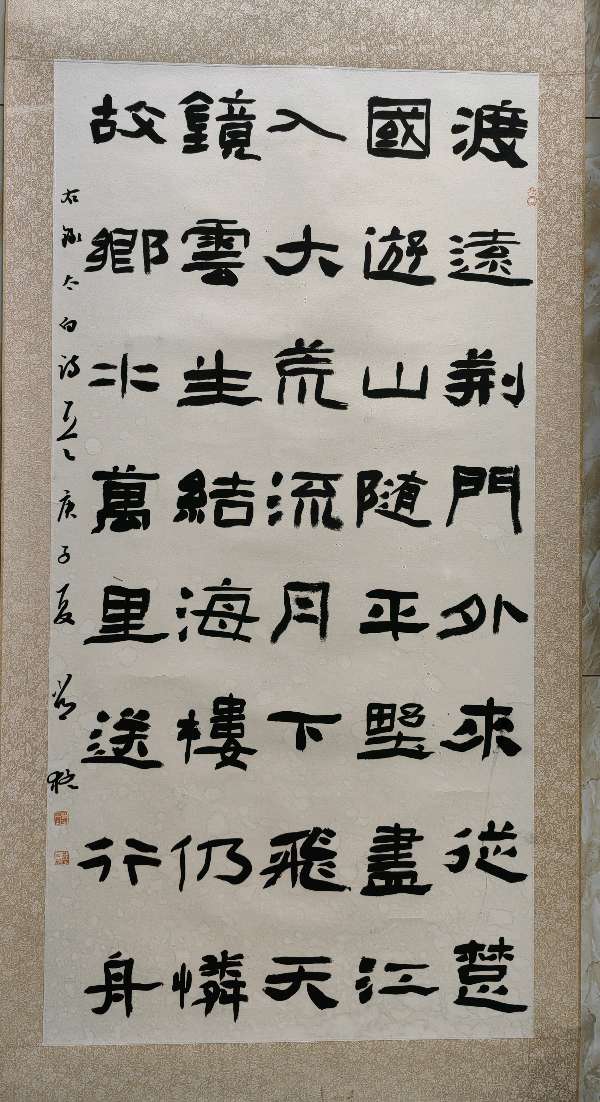 渡遠荊門外來從楚
國遊山隨平墅盡江
入大荒流月下飛天
鏡雲生結海樓仍憐
故鄉水萬里送行舟
右錄太白詩一首 庚子夏